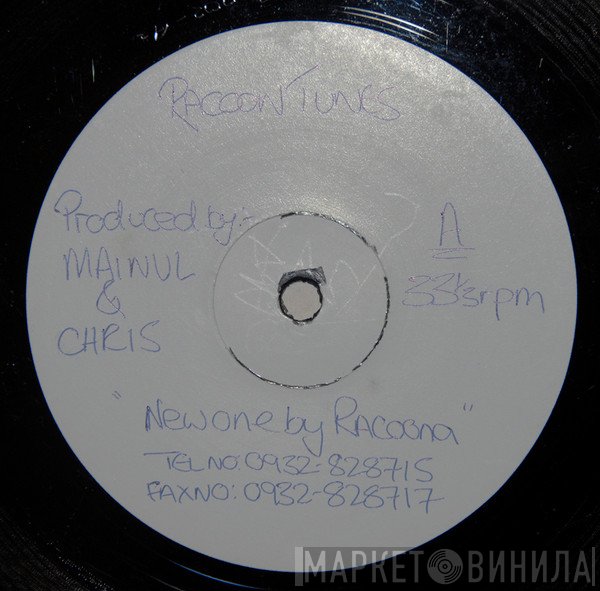 RACCOON TUNES
Produced by:-
MAINUL
&
CHRIS
A
33⅓rpm
"New one by RACOONA"
TEL NO: 0932-828715
FAX NO: 0932-828717
МАРКЕТ ВИНИЛА